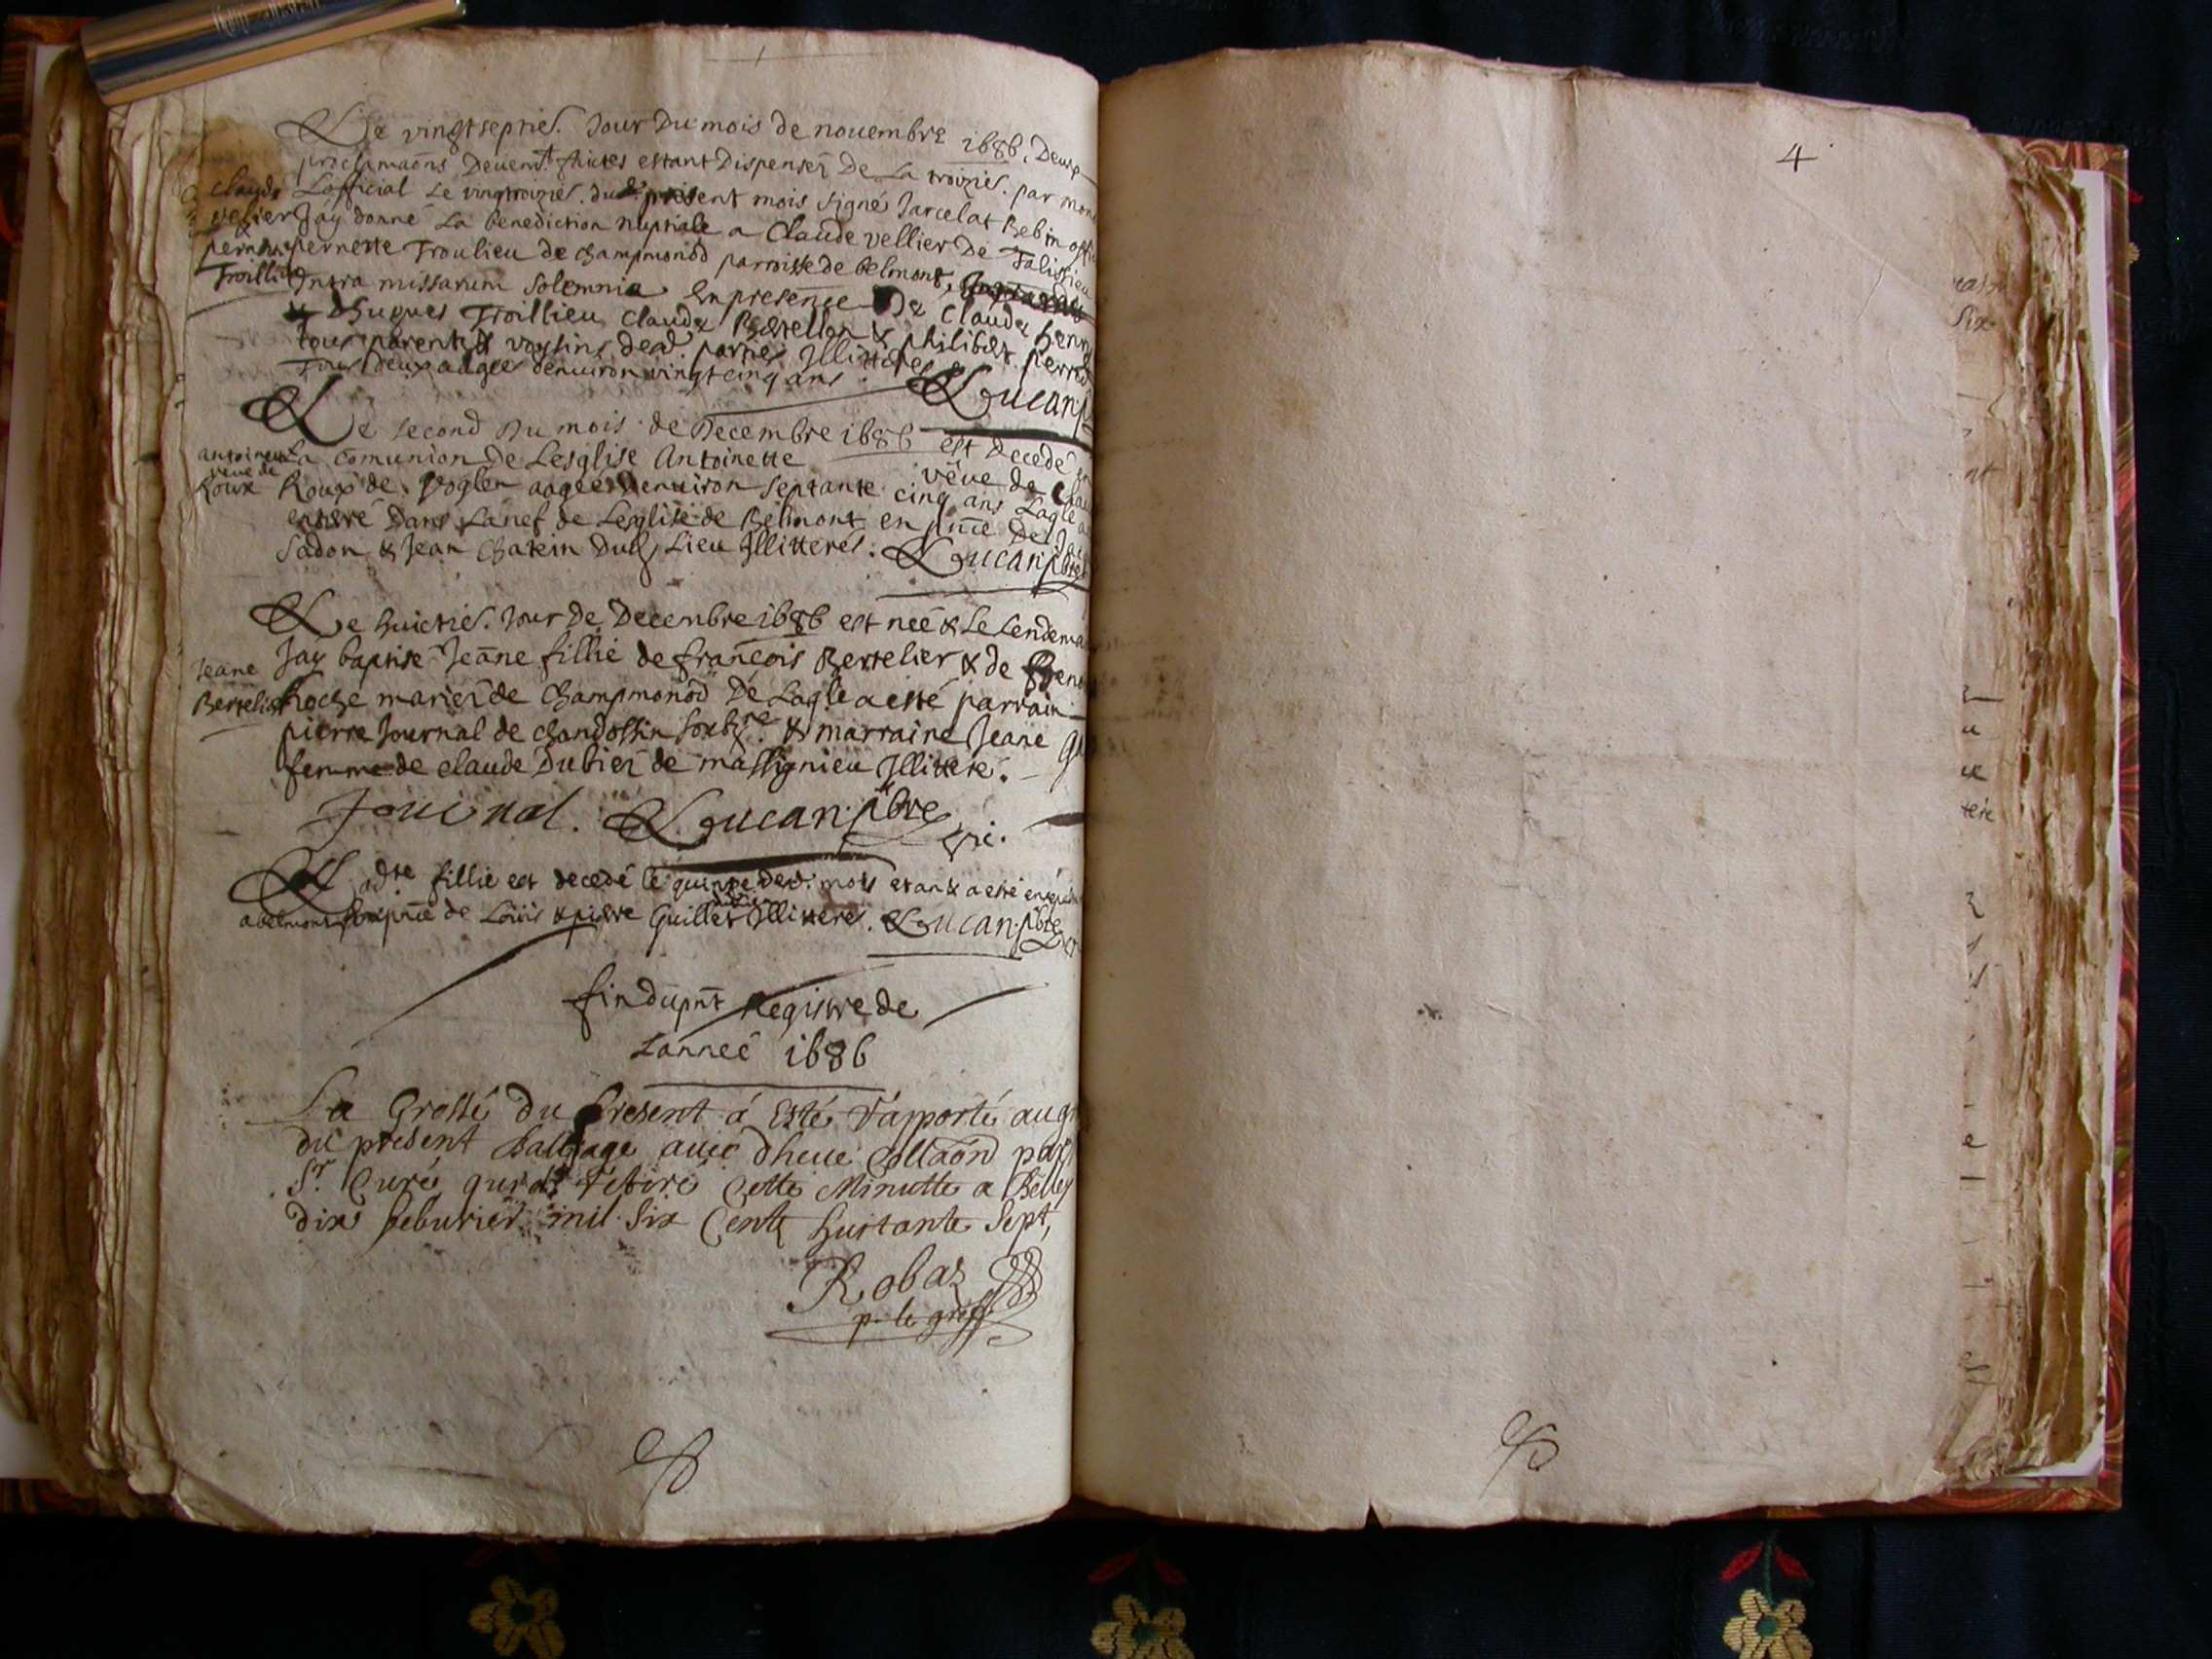 Le vingtseptieś. Jour Du mois de nouembre 1686. Deux
proclamaõns Deuem̃t faictes estant Dispenseź De La troizieś. par mon
Lofficial Le vingtroizieś. dud. present mois signé Jarcelat Bebin offi
Claude
vellier
pernette
Troillieu
Jay donné La benediction nuptiale a Claude vellier De Talissieu
pernette Troulieu de champmonod parroisse de belmont,
Intra missarum solemnia en presence De Claude henry
& Hugues Troillieu Claude Bertellon & philibert perret
tous parents & voysins desd. parties Illitteres
Tous deux aages denuiron vingt cinq ans. Lucan p
Le second Du mois de Decembre 1686 est Decedé en
antoinette
veue de
Roux
La comunion De Lesglise Antoinette vêue de Clau
Roux de Voglen aagée Denuiron septante cinq ans Laq̃le a
enterré Dans La nef de Lesglise de Belmont en pñce De Ja
Sadon & Jean Chatein Dud. Lieu Illitterés. Lucan pbre
Le huictieś. Jour De Decembre 1686 est neé & Le Lendema
Jeane
Bertelier
Jay baptisé Jeãne fillie de francois Bertelier & de Beno
Roche marieź de Champmonod De Laq̃le a esté parrain
pierre Journal de chandossin soubz.né & marraine Jeane Gu
femme de claude Dubiez de massignieu Illitteré.
Journal. Lucan pbre
Lad.te fillie est decedé le quinze dud. mois etant a esté enterré
a belmont en pñce de Loüis & pierre Guillet Illitterés. Lucan pbre
fin du pñt Registre de
Lanneé 1686
La Grosse du present á Esté rapporté au gr
du present Balliage auec dheue Collaõn par
Sr. Curé qui á retiré Cette Minutte a Belley
dix feburier mil Six Cents huitante Sept,
Robat
p. le greff.
4